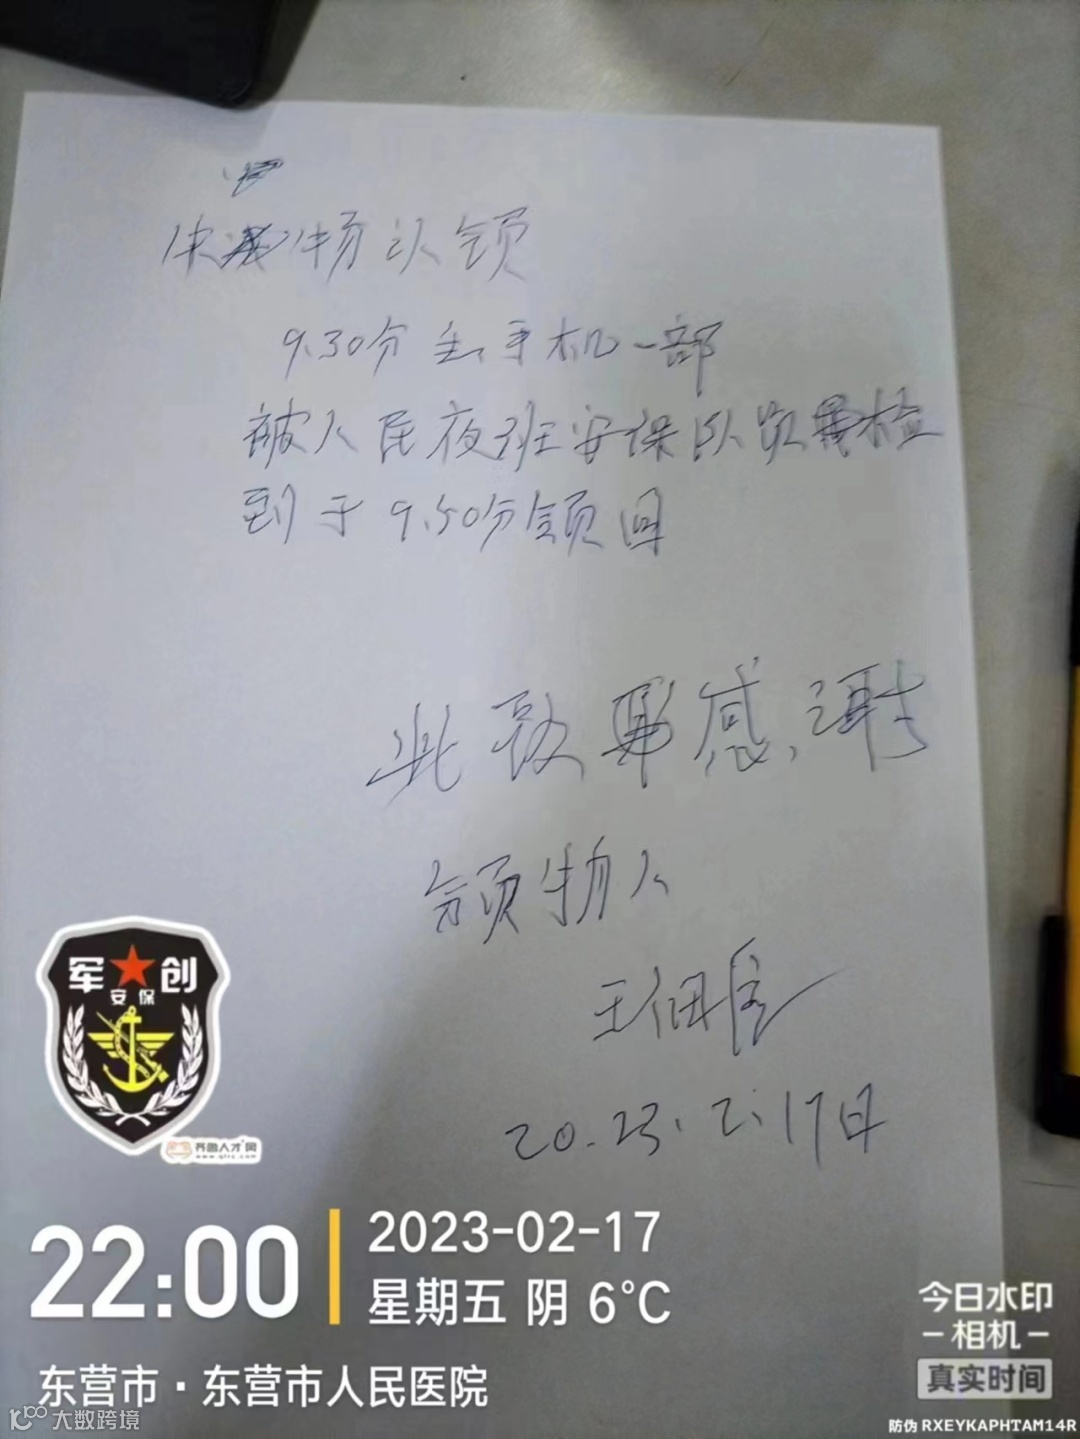 物认领
9.30分丢手机一部
被人民夜班安保队员检
到于9.50分领回
此致 感谢
领物人
王
2023.2.17日
军创
安保
齐鲁人才网
www.qlrc.com
22:00
2023-02-17
星期五 阴 6°C
东营市·东营市人民医院
今日水印
-相机-
真实时间
防伪 RXEYKAPHTAM14R
10100 大数跨境